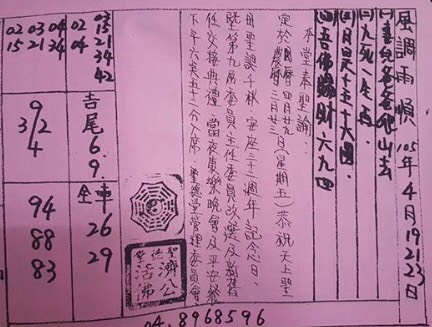 風調雨順 105年4月19 21 23日
(二)九死一生再
(三)月圓十五十六圓
(四)吾佛賜財六九四
本堂奉聖諭:
定於國曆四月廿九日(星期五)恭祝天上聖
農曆三月廿三
母聖誕千秋 安座三十二週年記念日、
暨第九屆委員主任委員改選及新舊
任交接典禮 當夜康樂晚會及平安餐
分入席. 聖德堂管理委員會
濟公
活佛
02 03 04
15 21 34
02 03
04 15
21
34
42
吉尾
6.
9.
9
3/2
4
全車
26
29
94
88
83
04.8968596